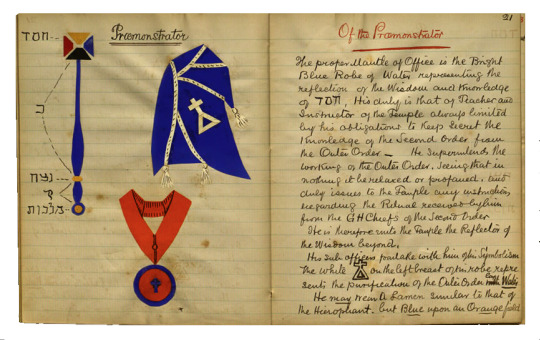 חסד
Præmonstrator
נ
נצח
ק
מלכות
21
Of the Præmonstrator
The proper Mantle of Office is the Bright
Blue Robe of Water representing the
reflection of the Wisdom and Knowledge
of חסד, His duty is that of Teacher and
Instructor of the Temple always limited
by his obligations to keep secret the
Knowledge of the Second Order from
the Outer Order — He Superintends the
working of the Outer Order, Seeing that in
nothing it be relaxed or profaned. and
duly issues to the Temple any instruction
regarding the Ritual received by him
from the G H Chiefs of the Second Order
He is therefore unto the Temple the Reflector of
the Wisdom beyond.
His sub officers partake with him of his Symbolism
The white on the left breast of his robe repre
sents the purification of the Outer Order by Water
He may wear a Lamen similar to that of
the Hierophant. but Blue upon an Orange field